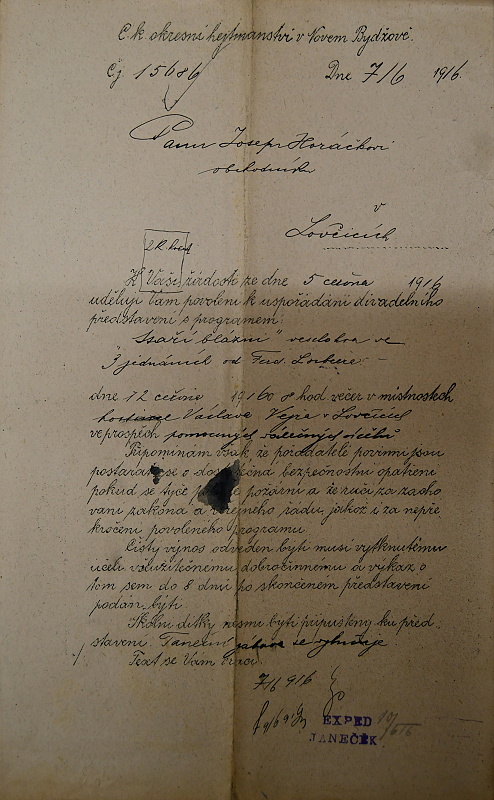 C. k. okresní hejtmanství v Novém Bydžově.
Čj. 15686 Dne 7/6 1916.
Panu Josefu Horáčkovi
obchodníku
v
Lovčicích
2 K kolek
K Vaší žádosti ze dne 5 června 1916
uděluji Vám povolení k uspořádání divadelního
představení s programem:
"Staří blázni" veselohra ve
3 jednáních od Ferd.
dne 12 června 1916 o 8 hod večer v místnostech
hostince Václava v Lovčicích
ve prospěch pomocných válečných
Připomínám však, že pořadatelé povinni jsou
postarati se o dostatečná bezpečnostní opatření
pokud se týče požární a že ručí za zacho
vání zákona a veřejného řádu, jakož i za nepře
kročení povoleného programu.
Čistý výnos odveden býti musí vytknutému
účeli všeužitečnému dobročinnému a výkaz o
tom sem do 8 dnů po skončeném představení
podán býti.
Školní dítky nesmí býti připuštěny ku před
stavení. Taneční zábava se
Text se Vám vrací.
7/6 916
EXPED 10/6 16
JANEČEK